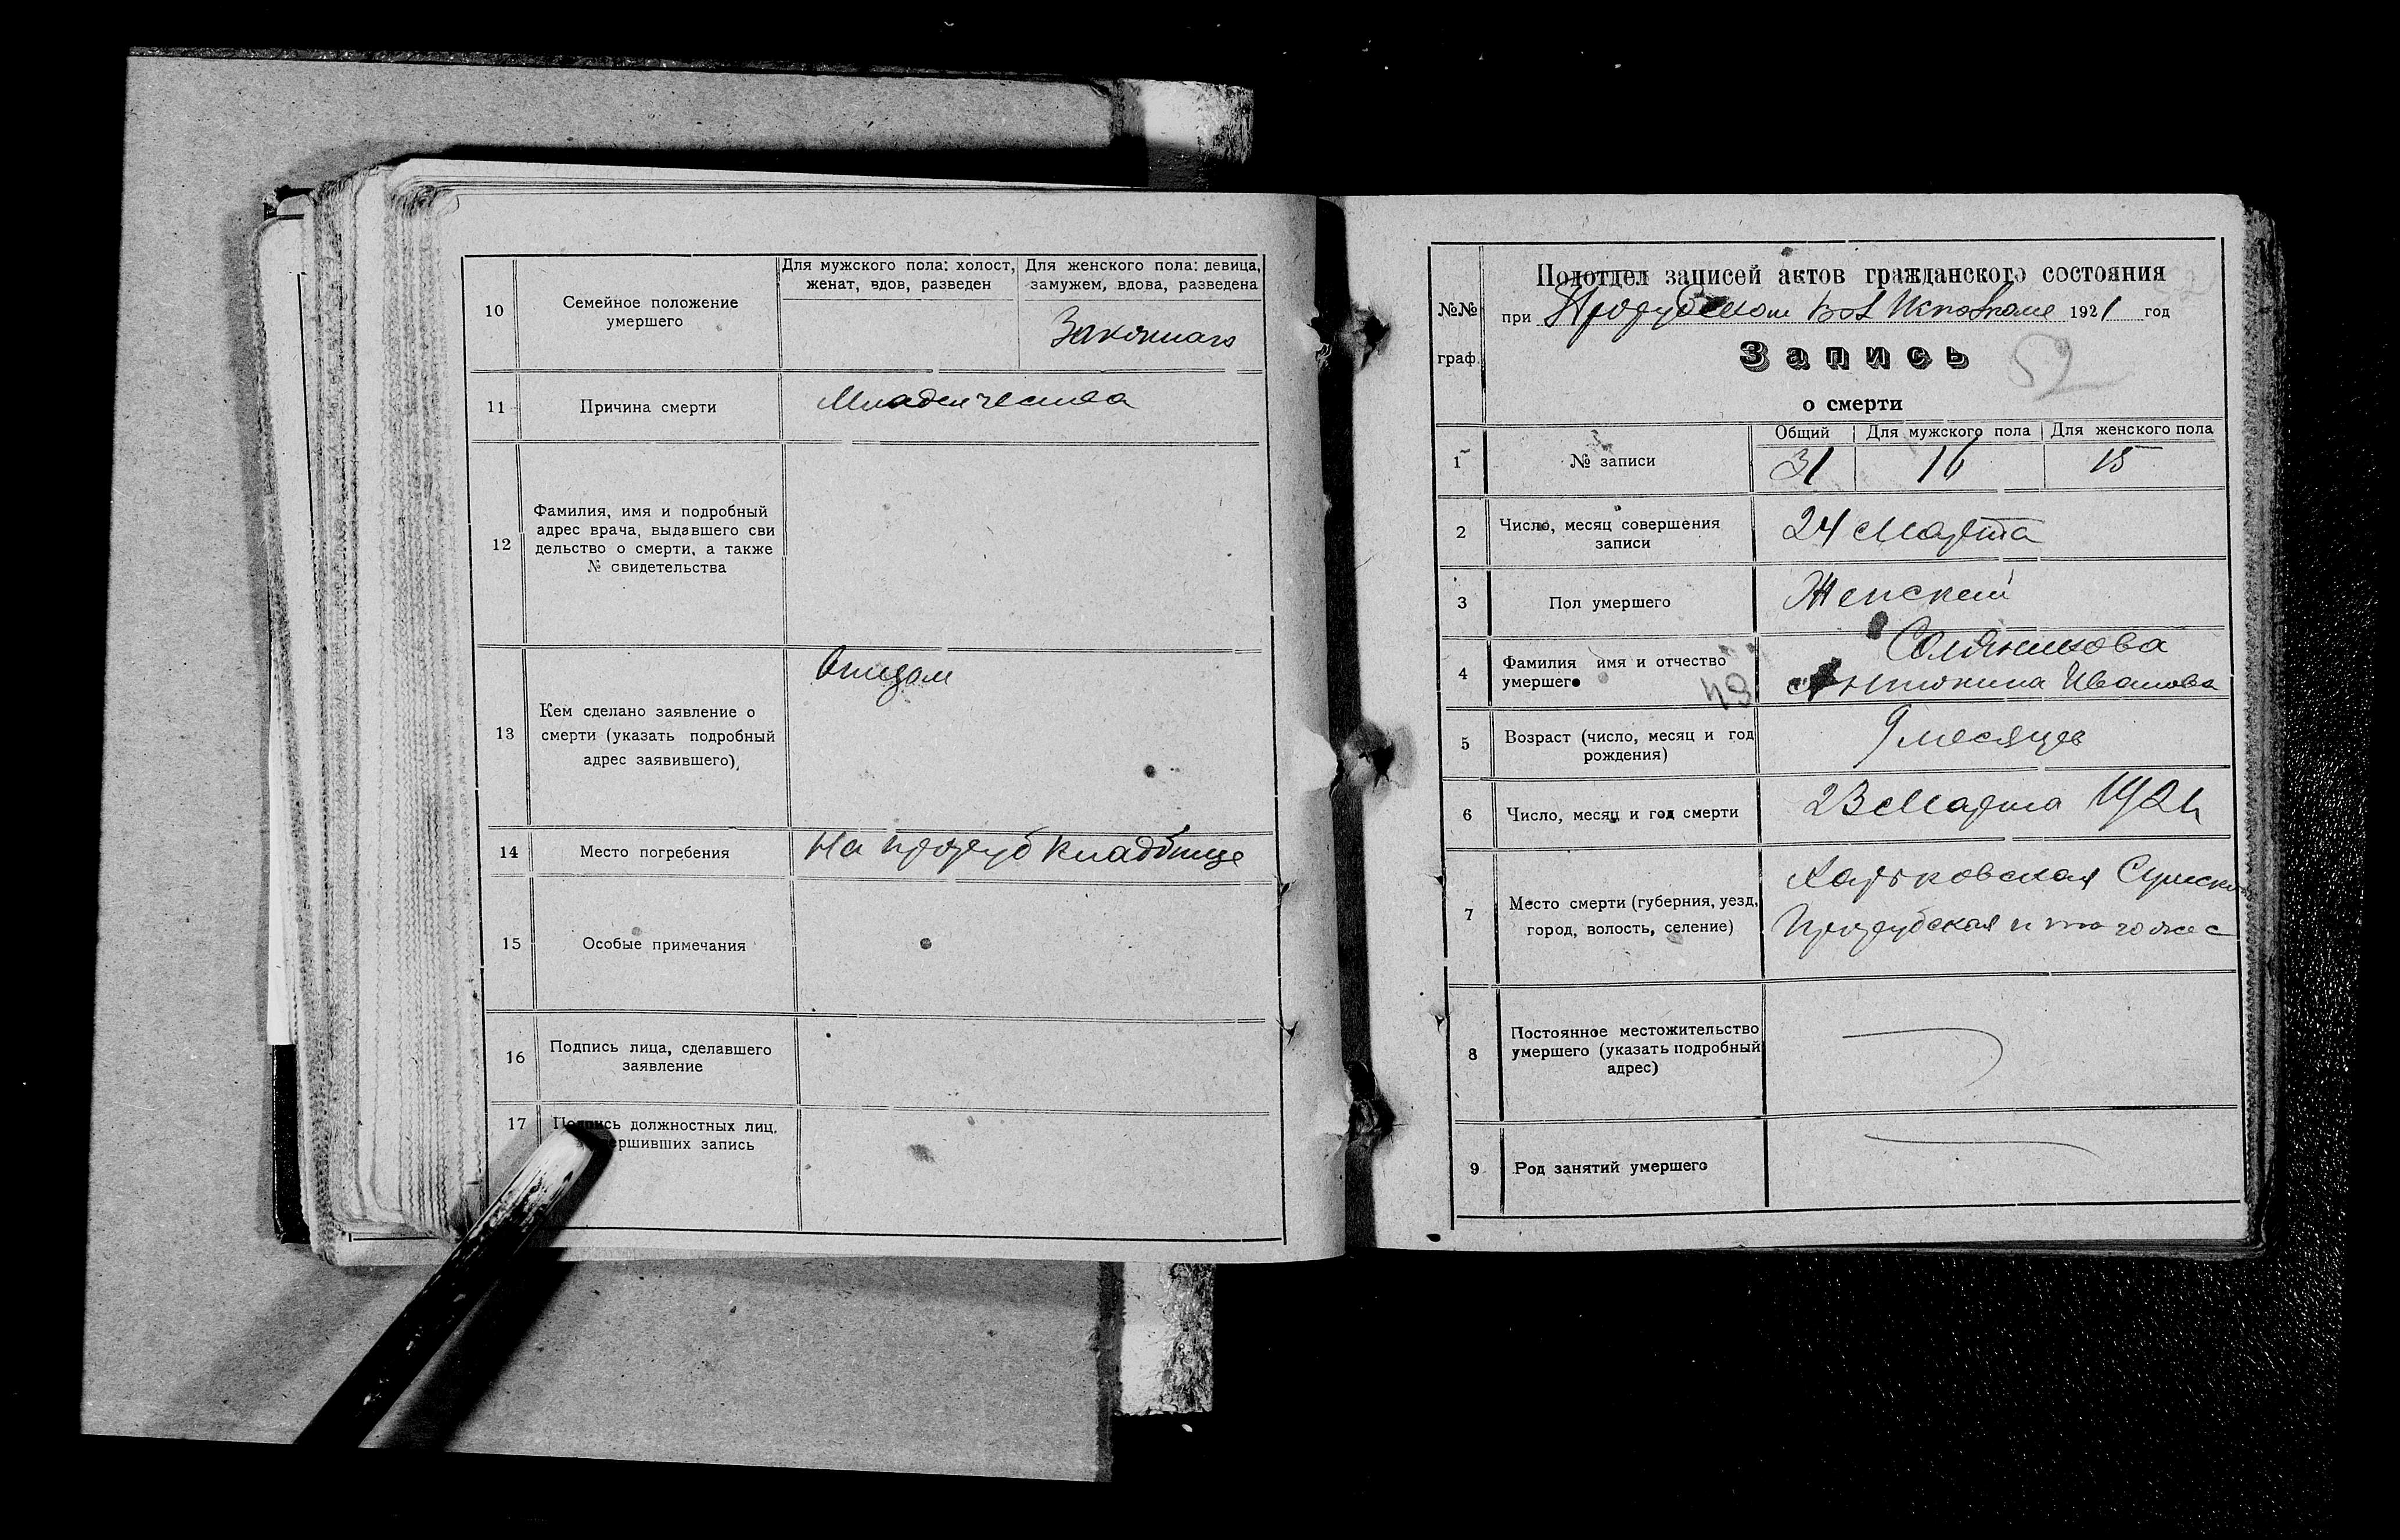 10
Семейное положение
умершего
Для мужского пола: холост,
женат, вдов, разведен
Для женского пола: девица,
замужем, вдова, разведена
Законная
11
Причина смерти
Младенчества
12
Фамилия, имя и подробный
адрес врача, выдавшего сви
дельство о смерти, а также
№ свидетельства
13
Кем сделано заявление о
смерти (указать подробный
адрес заявившего)
Отцом
14
Место погребения
На проруб кладбище
15
Особые примечания
16
Подпись лица, сделавшего
заявление
17
Подпись должностных лиц,
ершивших запись
№№
граф.
Подотдел записей актов гражданского состояния
при Прорубском Вол Исполкоме 1921 год
Запись
52
о смерти
1
№ записи
Общий
Для мужского пола
Для женского пола
31
16
15
2
Число, месяц совершения
записи
24 Марта
3
Пол умершего
Женский
4
Фамилия имя и отчество
умершего
43
Соляникова
Антонина Иванова
5
Возраст (число, месяц и год
рождения)
9 месяцев
6
Число, месяц и год смерти
23 Марта 1921
7
Место смерти (губерния, уезд,
город, волость, селение)
Харьковская Сумской
Прорубская и того же с
8
Постоянное местожительство
умершего (указать подробный
адрес)
9
Род занятий умершего